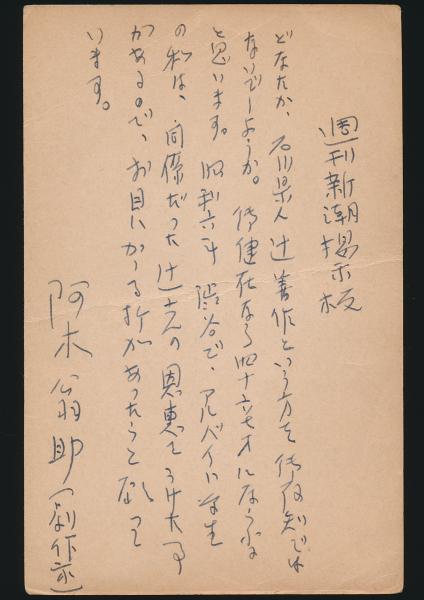 週刊新潮掲示板
どなたか、石川県人辻善作という方を御存知では
ないでしょうか。御健在なら四十六七才になるか
と思います。昭和六年渋谷で、アルバイト学生
の私は、同僚だった辻さんの恩恵をうけた事
があるので、お目にかゝる折があったらと願って
います。
阿木翁助(劇作家)